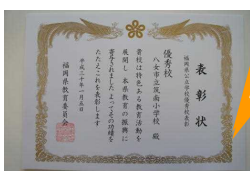 表彰状
福岡県公立学校優秀校表彰
優秀校
八女市立筑南小学校 殿
貴校は特色ある教育活動を
展開し 本県教育の振興に
寄与されました よってその功績を
たたえこれを表彰します
平成二十年一月五日
福岡県教育委員会